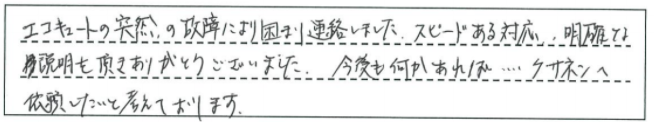 エコキュートの突然の故障により困まり連絡しました。スピードある対応、明確な
説明も頂きありがとうございました。 今後も何かあれば‥‥クサネンへ
依頼したいと考えております。